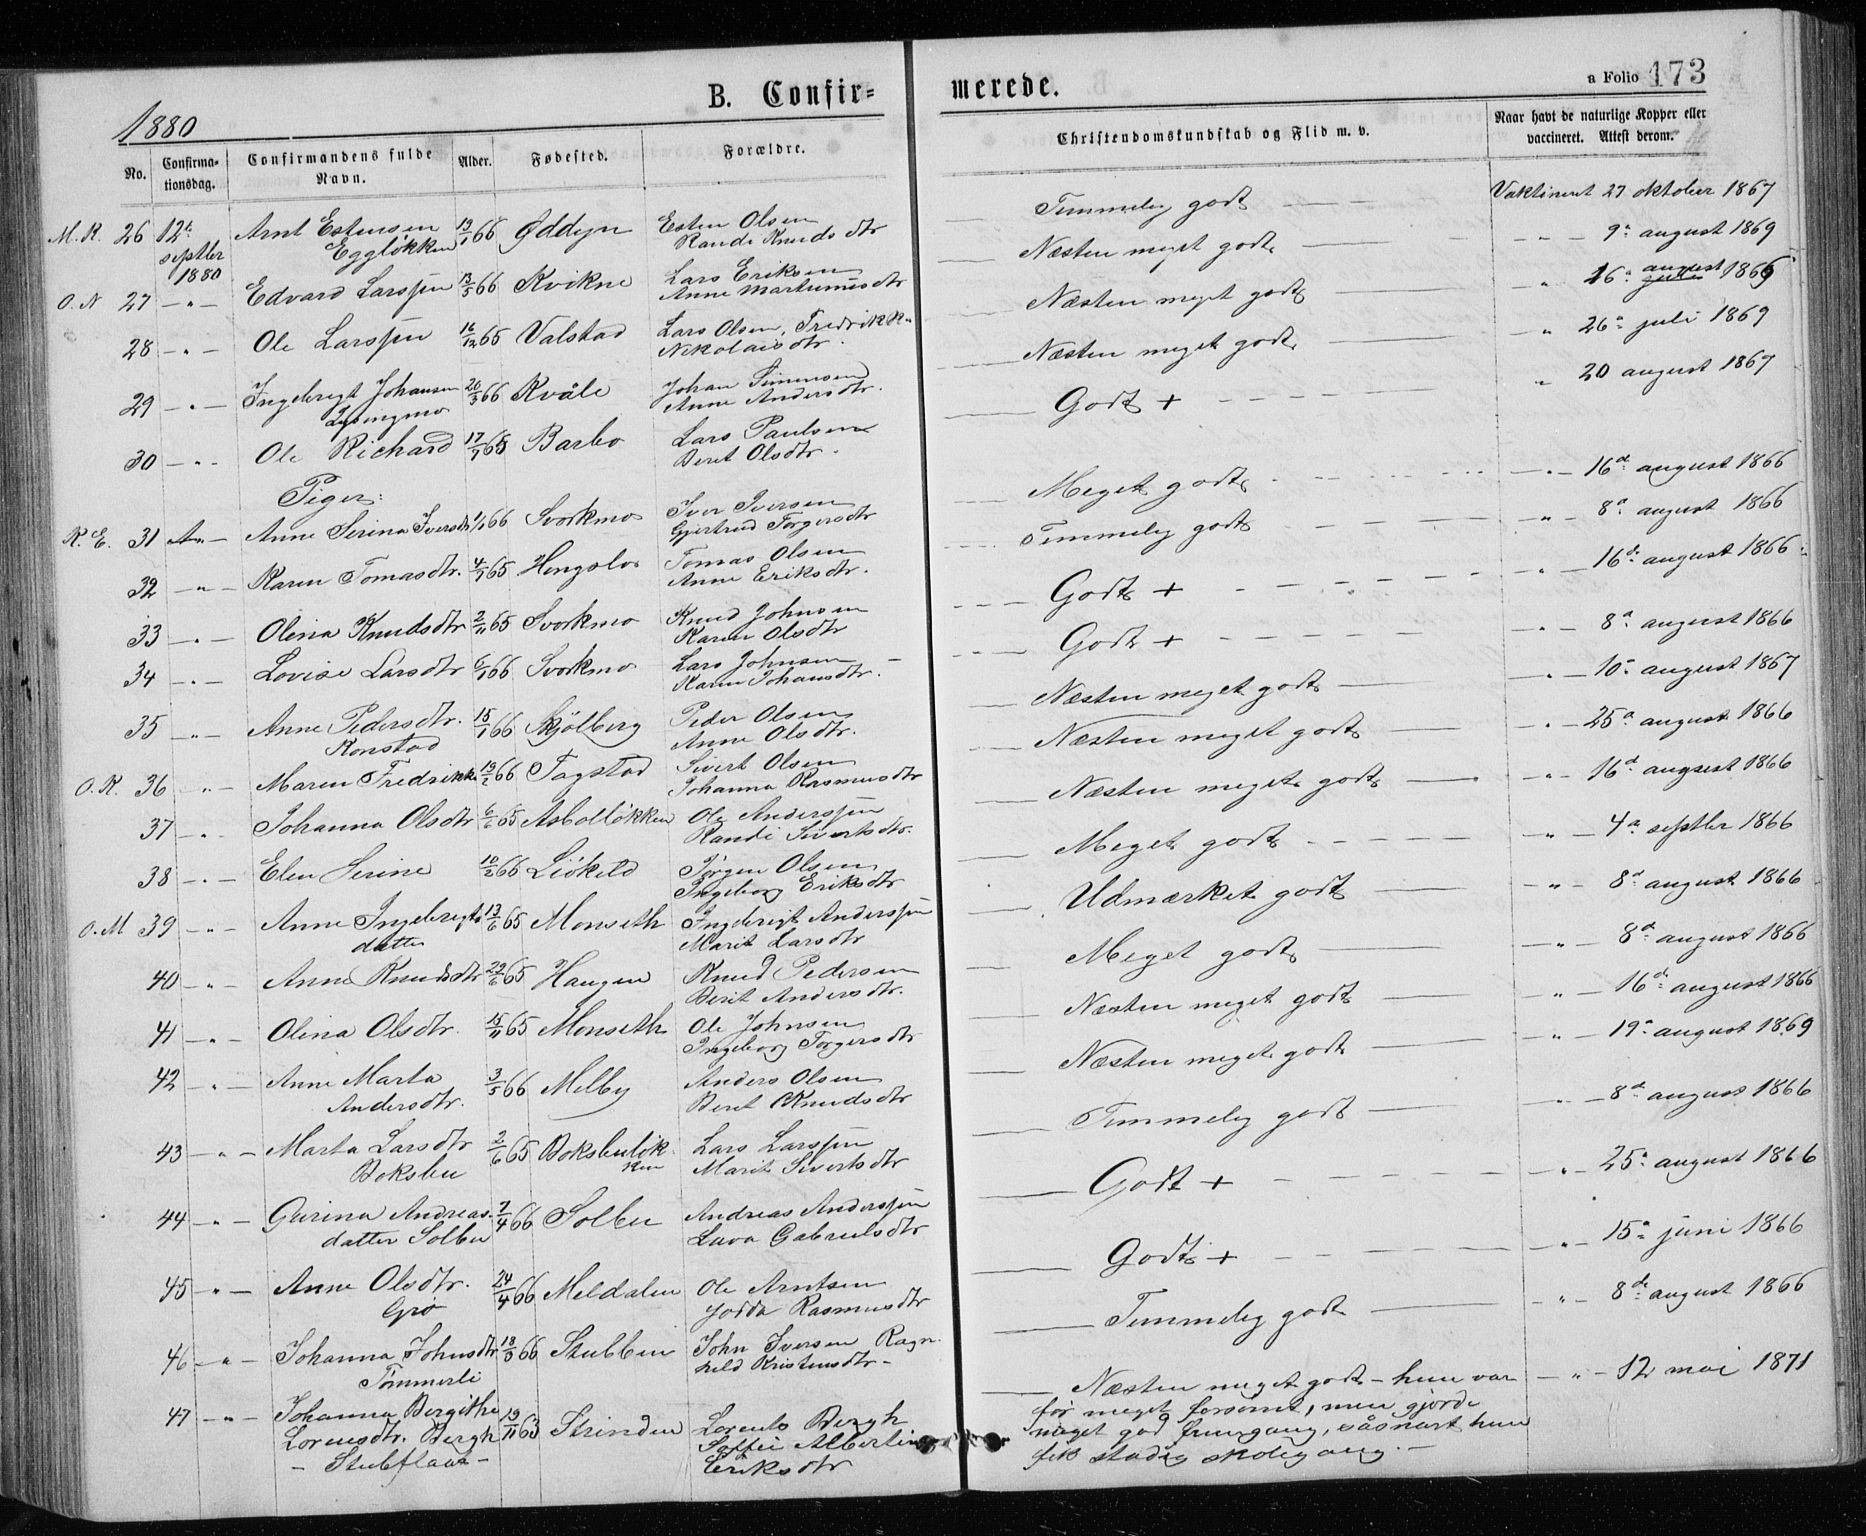 1880
B. Confir=
merede.
a Folio 173
No.
Confirma-
tionsdag.
Confirmandens fulde
Navn.
Alder.
Fødested.
Forældre.
Christendomskundskab og Flid m. v.
Naar havt de naturlige Kopper eller
vaccineret. Attest derom.
M.R. 26 12te septbr 1880 Arnt Estensen 19/1 66 Esten Olsen
Eggløkken Randi Knudsdtr
Temmelig godt Vaktineret 27 oktober 1867
O.N 27 — " — Edvard Larssøn 13/5 66 Kvikne Lars Eriksen
Anne Martinusdtr
Næsten meget godt — " — 9de august 1869
28 — " — Ole Larssøn 16/12 65 Valstad Lars Olsen, Fredrikke
Nikolaisdtr.
Næsten meget godt " 16de august 1869
29 — " — Ingebrigt Johansen 20/3 66 Kvåle Johan Simensen
Anne Andersdtr.
Næsten meget godt " 26de juli 1869
30 — " — Ole Richard 17/7 65 Barbo Lars Paulsen
Beret Olsdtr.
Godt + " 20 august 1867
Piger:
R.E. 31 — " — Anne Serina Iversdtr 1/1 66 Svorkmo Iver Iversen
Gjertrud Torgersdtr
Meget godt — " — 16de august 1866
32 — " — Karen Tomasdtr. 4/7 65 Hongslo Tomas Olsen
Anne Eriksdtr.
Temmelig godt " — 8de august 1866
33 — " — Olina Knudsdtr 2/11 65 Svorkmo Knud Johnsen
Karen Olsdtr
Godt + — " — 16de august 1866
34 — " — Lovise Larsdtr 6/1 66 Svorkmo Lars Johnsen
Karen Johansdtr.
Godt + — " — 8de august 1866
35 — " — Anne Pedersdtr. 15/1 66 Skjölberg Peder Olsen
Konstad Anne Olsdtr.
Næsten meget godt — " — 10de august 1867
O.R. 36 — " — Maren Fredrikke 13/2 66 Fagstad Sivert Olsen
Johanna Rasmusdtr
Næsten meget godt — " — 25de august 1866
37 — " — Johanna Olsdtr 6/6 65 Asbolløkken Ole Anderssøn
Randi Sivertsdtr.
Næsten meget godt — " — 16de august 1866
38 — " — Elen Serine 10/2 66 Jörgen Olsen
Ingeborg Eriksdtr
Meget godt — " — 4de septbr 1866
O.M 39 — " — Anne Ingebrigts 13/6 65 Monseth Ingebrigt Anderssøn
datter Marit Larsdtr
Udmærket godt — " — 8de august 1866
40 — " — Anne Knudsdtr 29/6 65 Haugen Knud Pedersen
Berit Andersdtr.
Meget godt — " — 8de august 1866
41 — " — Olina Olsdtr. 15/11 65 Monseth Ole Johnsen
Ingeborg Torgersdtr
Næsten meget godt " — 16de august 1866
42 — " — Anne Marta 3/5 66 Melby Anders Olsen
Andersdtr. Beret Knudsdtr
Næsten meget godt — " — 19de august 1869
43 — " — Marta Larsdtr 2/6 65 Boksbuløk- Lars Larssøn
Boksbu ken Marit Sivertsdtr
Temmelig godt — " — 8de august 1866
44 — " — Gurina Andreas- 7/4 66 Solbu Andreas Anderssøn
datter Solbu Gabrielsdtr
Godt + " — 25de august 1866
45 — " — Anne Olsdtr. 24/4 66 Meldalen Ole Arntsen
Gro Rasmusdtr
Godt + " — 15de juni 1866
46 — " — Johanna Johnsdtr 18/3 66 Stubben John Iversen Ragn-
Tömmerli hild Kristensdtr —
Temmelig godt " — 8de august 1866
47 — " — Johanna Bergithe 19/11 63 Strinden Lorents Bergh
Lorensdtr. Bergh Sofie Albertine
Eriksdtr
Næsten meget godt – hun var — " — 12 mai 1871
før meget forsömt, men gjorde
meget god fremgang, såsnart hun
fik stadig skolegang. —